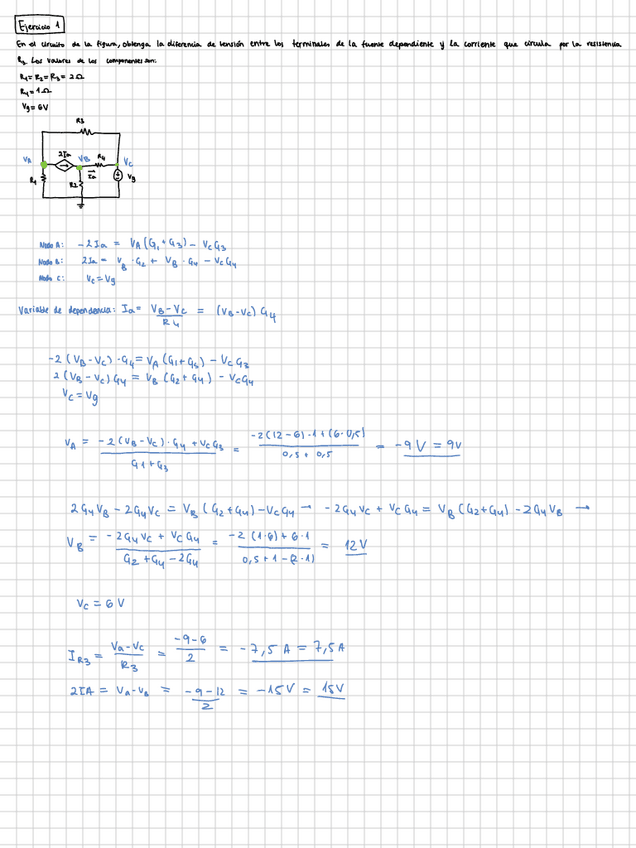 Ejercicio 1
En el circuito de la figura, obtenga la diferencia de tensión entre los terminales de la fuente dependiente y la corriente que circula por la resistencia
R3. Los valores de los componentes son:
R1=R2=R3= 2Ω
R4=1Ω
Vg=6V
R3
VA 2Ia VB R4 VC
R1 R2 Ia Vg
Nodo A: -2Ia = VA(G1+G3) - VcG3
Nodo B: 2Ia = VB·G2 + VB·G4 - VcG4
Nodo C: Vc=Vg
Variable de dependencia: Ia = VB-VC / R4 = (VB-VC) G4
-2(VB-VC)·G4 = VA(G1+G3) - VcG3
2(VB-VC)G4 = VB(G2+G4) - VcG4
Vc=Vg
VA = -2(VB-VC)·G4+VcG3 / G1+G3 = -2(12-6)·1+(6·0,5) / 0,5+0,5 = -9V = 9V
2G4VB - 2G4Vc = VB(G2+G4) - VcG4 → -2G4Vc + VcG4 = VB(G2+G4) - 2G4VB →
VB = -2G4Vc + VcG4 / G2+G4-2G4 = -2(1·6)+6·1 / 0,5+1-(2·1) = 12V
Vc = 6V
IR3 = Va-Vc / R3 = -9-6 / 2 = -7,5A = 7,5A
2IA = Va-VB = -9-12 / 2 = -15V = 15V